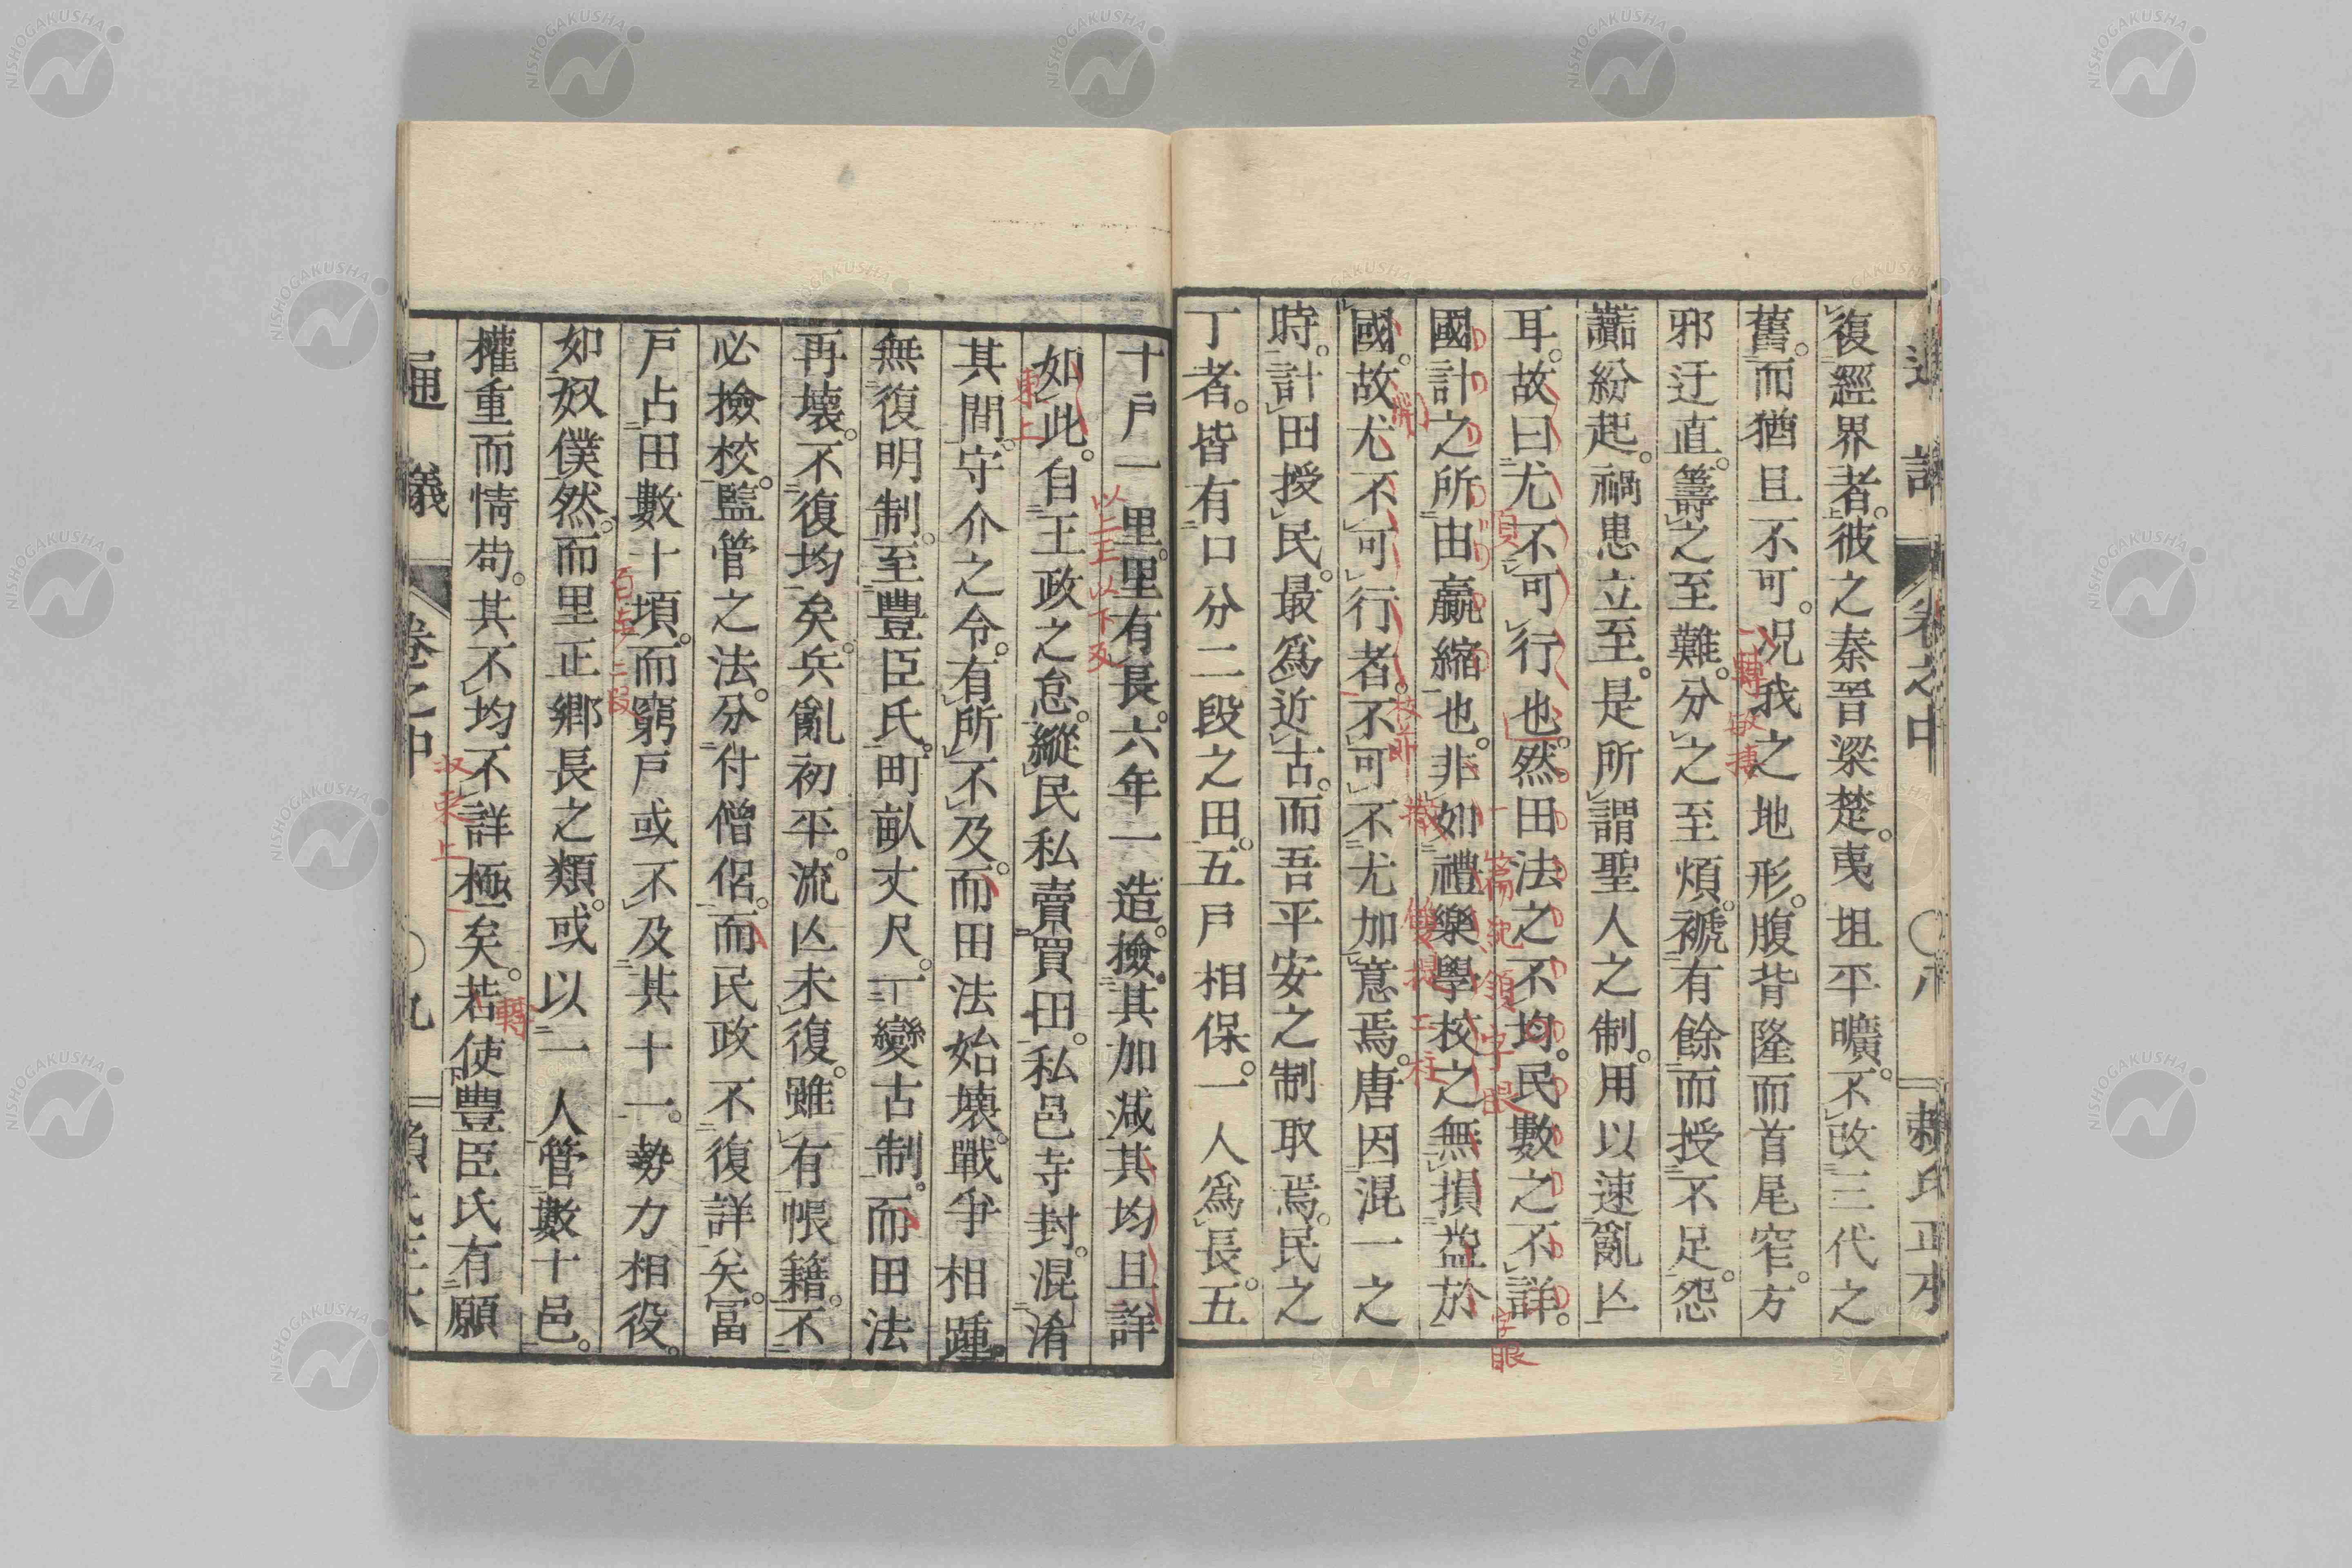 復經界者。彼之秦晉梁楚。夷坦平曠。不改三代之
舊。而猶且不可。況我之地形。腹背隆而首尾窄。方
邪迂直。籌之至難。分之至煩。褫有餘而授不足。怨
讟紛起。禍患立至。是所謂聖人之制。用以速亂亾
耳。故曰尤不可行也。然田法之不均。民數之不詳。
國計之所由贏縮也。非如禮樂學校之無損益於
國。故尤不可行者。不可不尤加意焉。唐因混一之
時。計田授民。最爲近古。而吾平安之制取焉。民之
丁者。皆有口分二段之田。五戸相保。一人爲長。五
十戸一里。里有長。六年一造。撿其加減其均且詳
如此。自王政之怠。縱民私賣買田。私邑寺封。混淆
其間。守介之令。有所不及。而田法始壊。戰爭相踵。
無復明制。至豐臣氏。町畝丈尺。一變古制。而田法
再壊。不復均矣。兵亂初平。流亾未復。雖有帳籍。不
必撿校。監管之法。分付僧侶。而民政不復詳矣。冨
戸占田數十頃。而窮戸或不及其十一。勢力相役。
如奴僕然。而里正鄉長之類。或以一人管數十邑。
權重而情苟。其不均不詳極矣。若使豐臣氏有願
通議 卷之中 〇九
〇八 頼氏正本
一轉敏捷
項
一篇犯領字眼
字眼
散
雙提二柱
以上王以下又
束上
轉
以束上